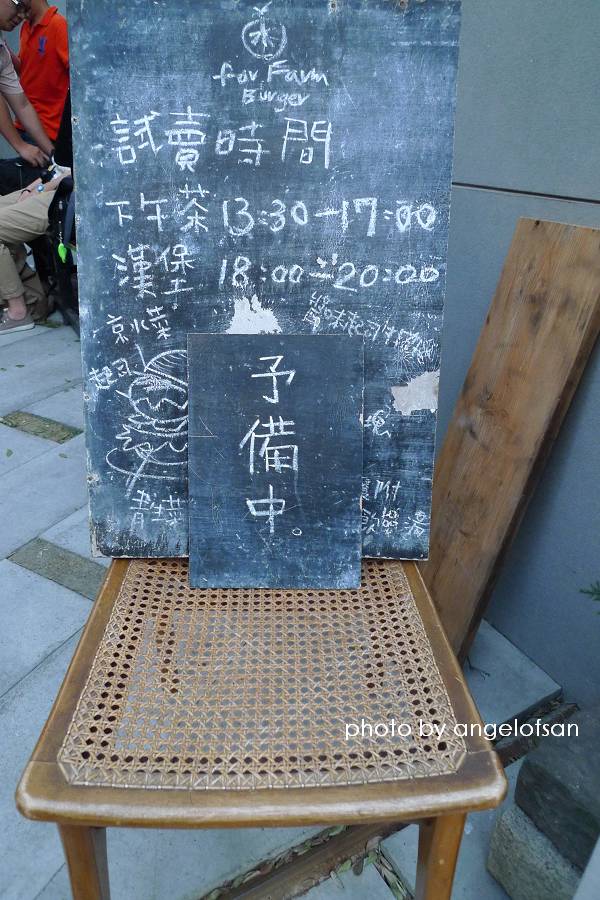 for Farm
Burger
試賣時間
下午茶 13:30-17:00
漢堡 18:00-20:00
京水菜
起司
青生菜
予
備
中。
附
photo by angelofsan